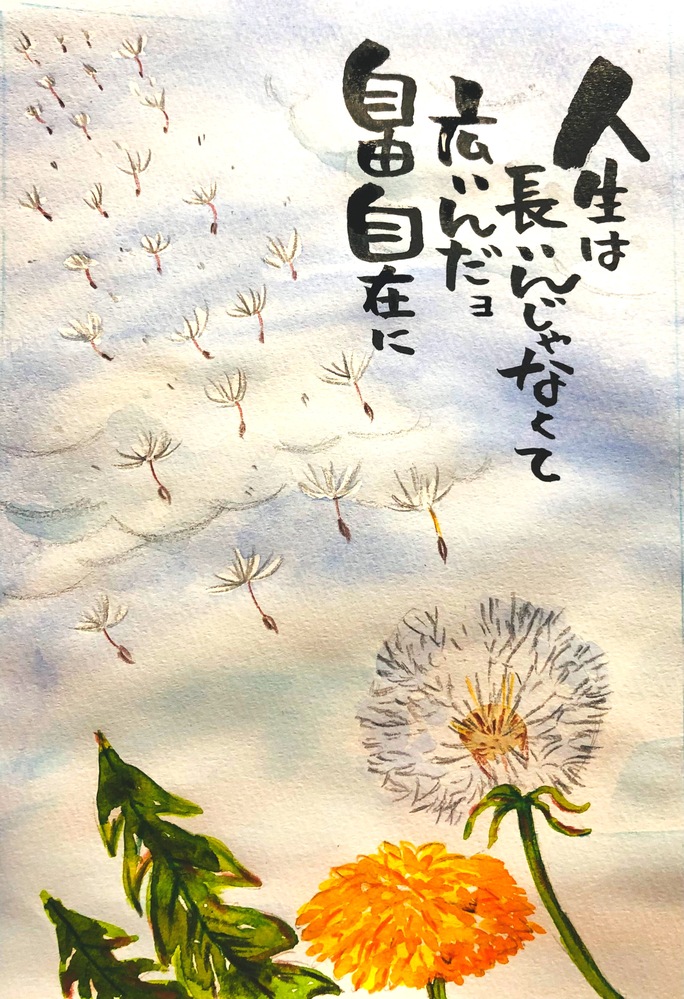 人生は
長いんじゃなくて
広いんだョ
自由自在に